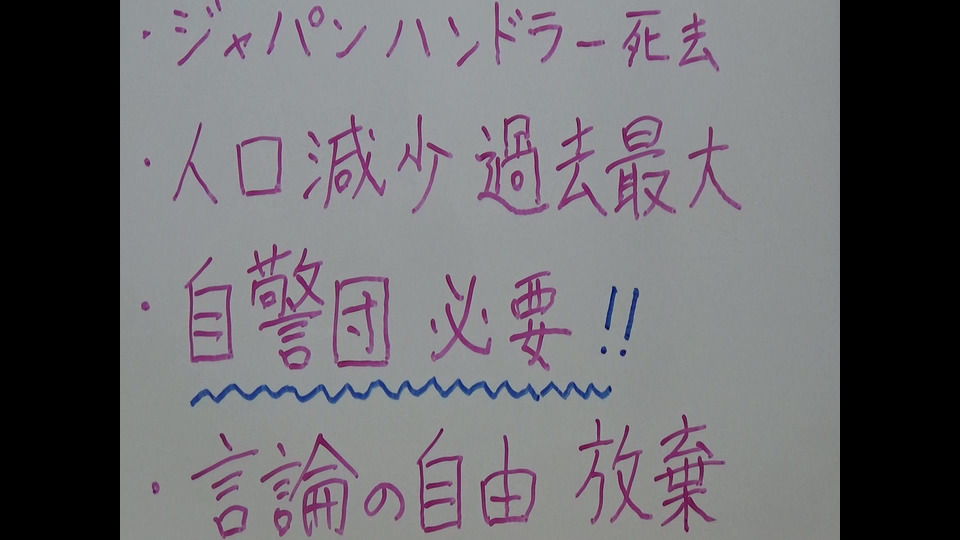 ・ジャパンハンドラー死去
・人口減少過去最大
・自警団 必要!!
・言論の自由 放棄